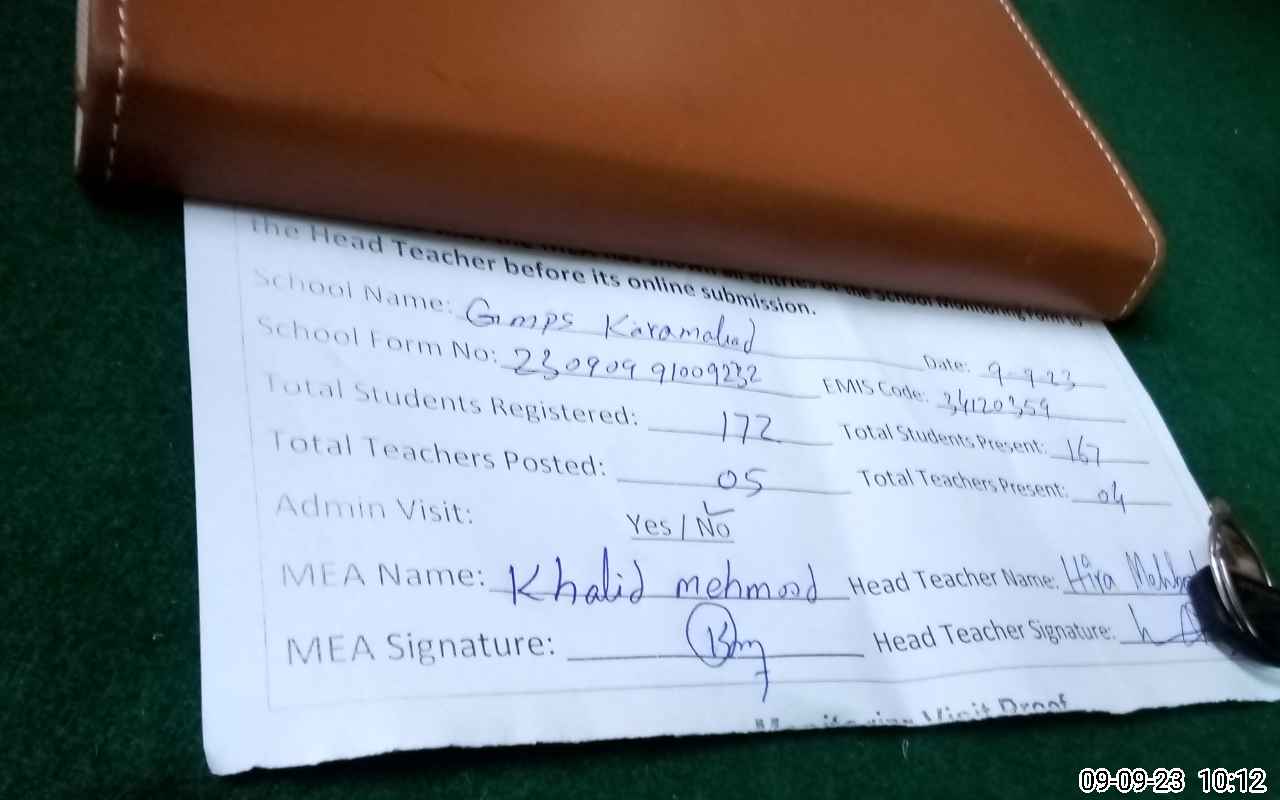 the Head Teacher before its online submission.
School Name: Gmps Karamabad Date: 9-9-23
School Form No: 230909 91009232 EMIS Code: 34120359
Total Students Registered: 172 Total Students Present: 167
Total Teachers Posted: 05 Total Teachers Present: 04
Admin Visit: Yes / No
MEA Name: Khalid mehmood Head Teacher Name: Hira
MEA Signature: Head Teacher Signature:
Monitoring Visit Proof
09-09-23 10:12